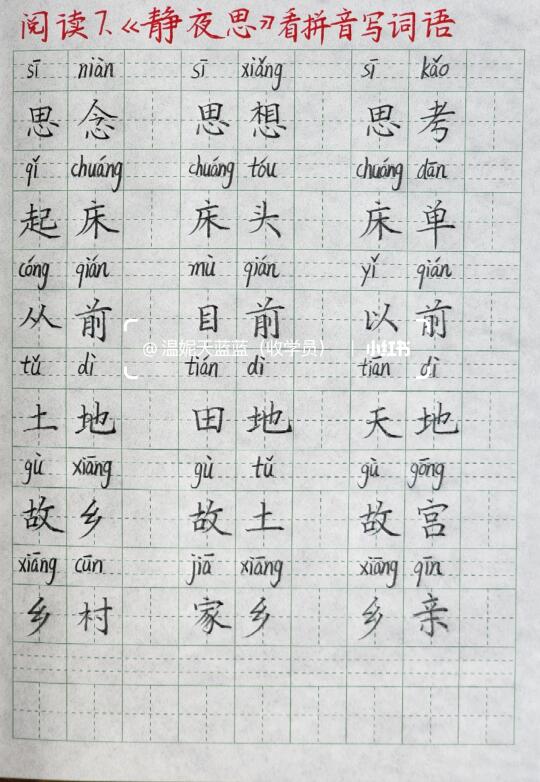 阅读7、《静夜思》看拼音写词语
sī niàn sī xiǎng sī kǎo
思念 思想 思考
qǐ chuáng chuáng tóu chuáng dān
起床 床头 床单
cóng qián mù qián yǐ qián
从前 目前 以前
@温妮天蓝蓝（收学员） 小红书
tǔ dì tián dì tiān dì
土地 田地 天地
gù xiāng gù tǔ gù gōng
故乡 故土 故宫
xiāng cūn jiā xiāng xiāng qīn
乡村 家乡 乡亲